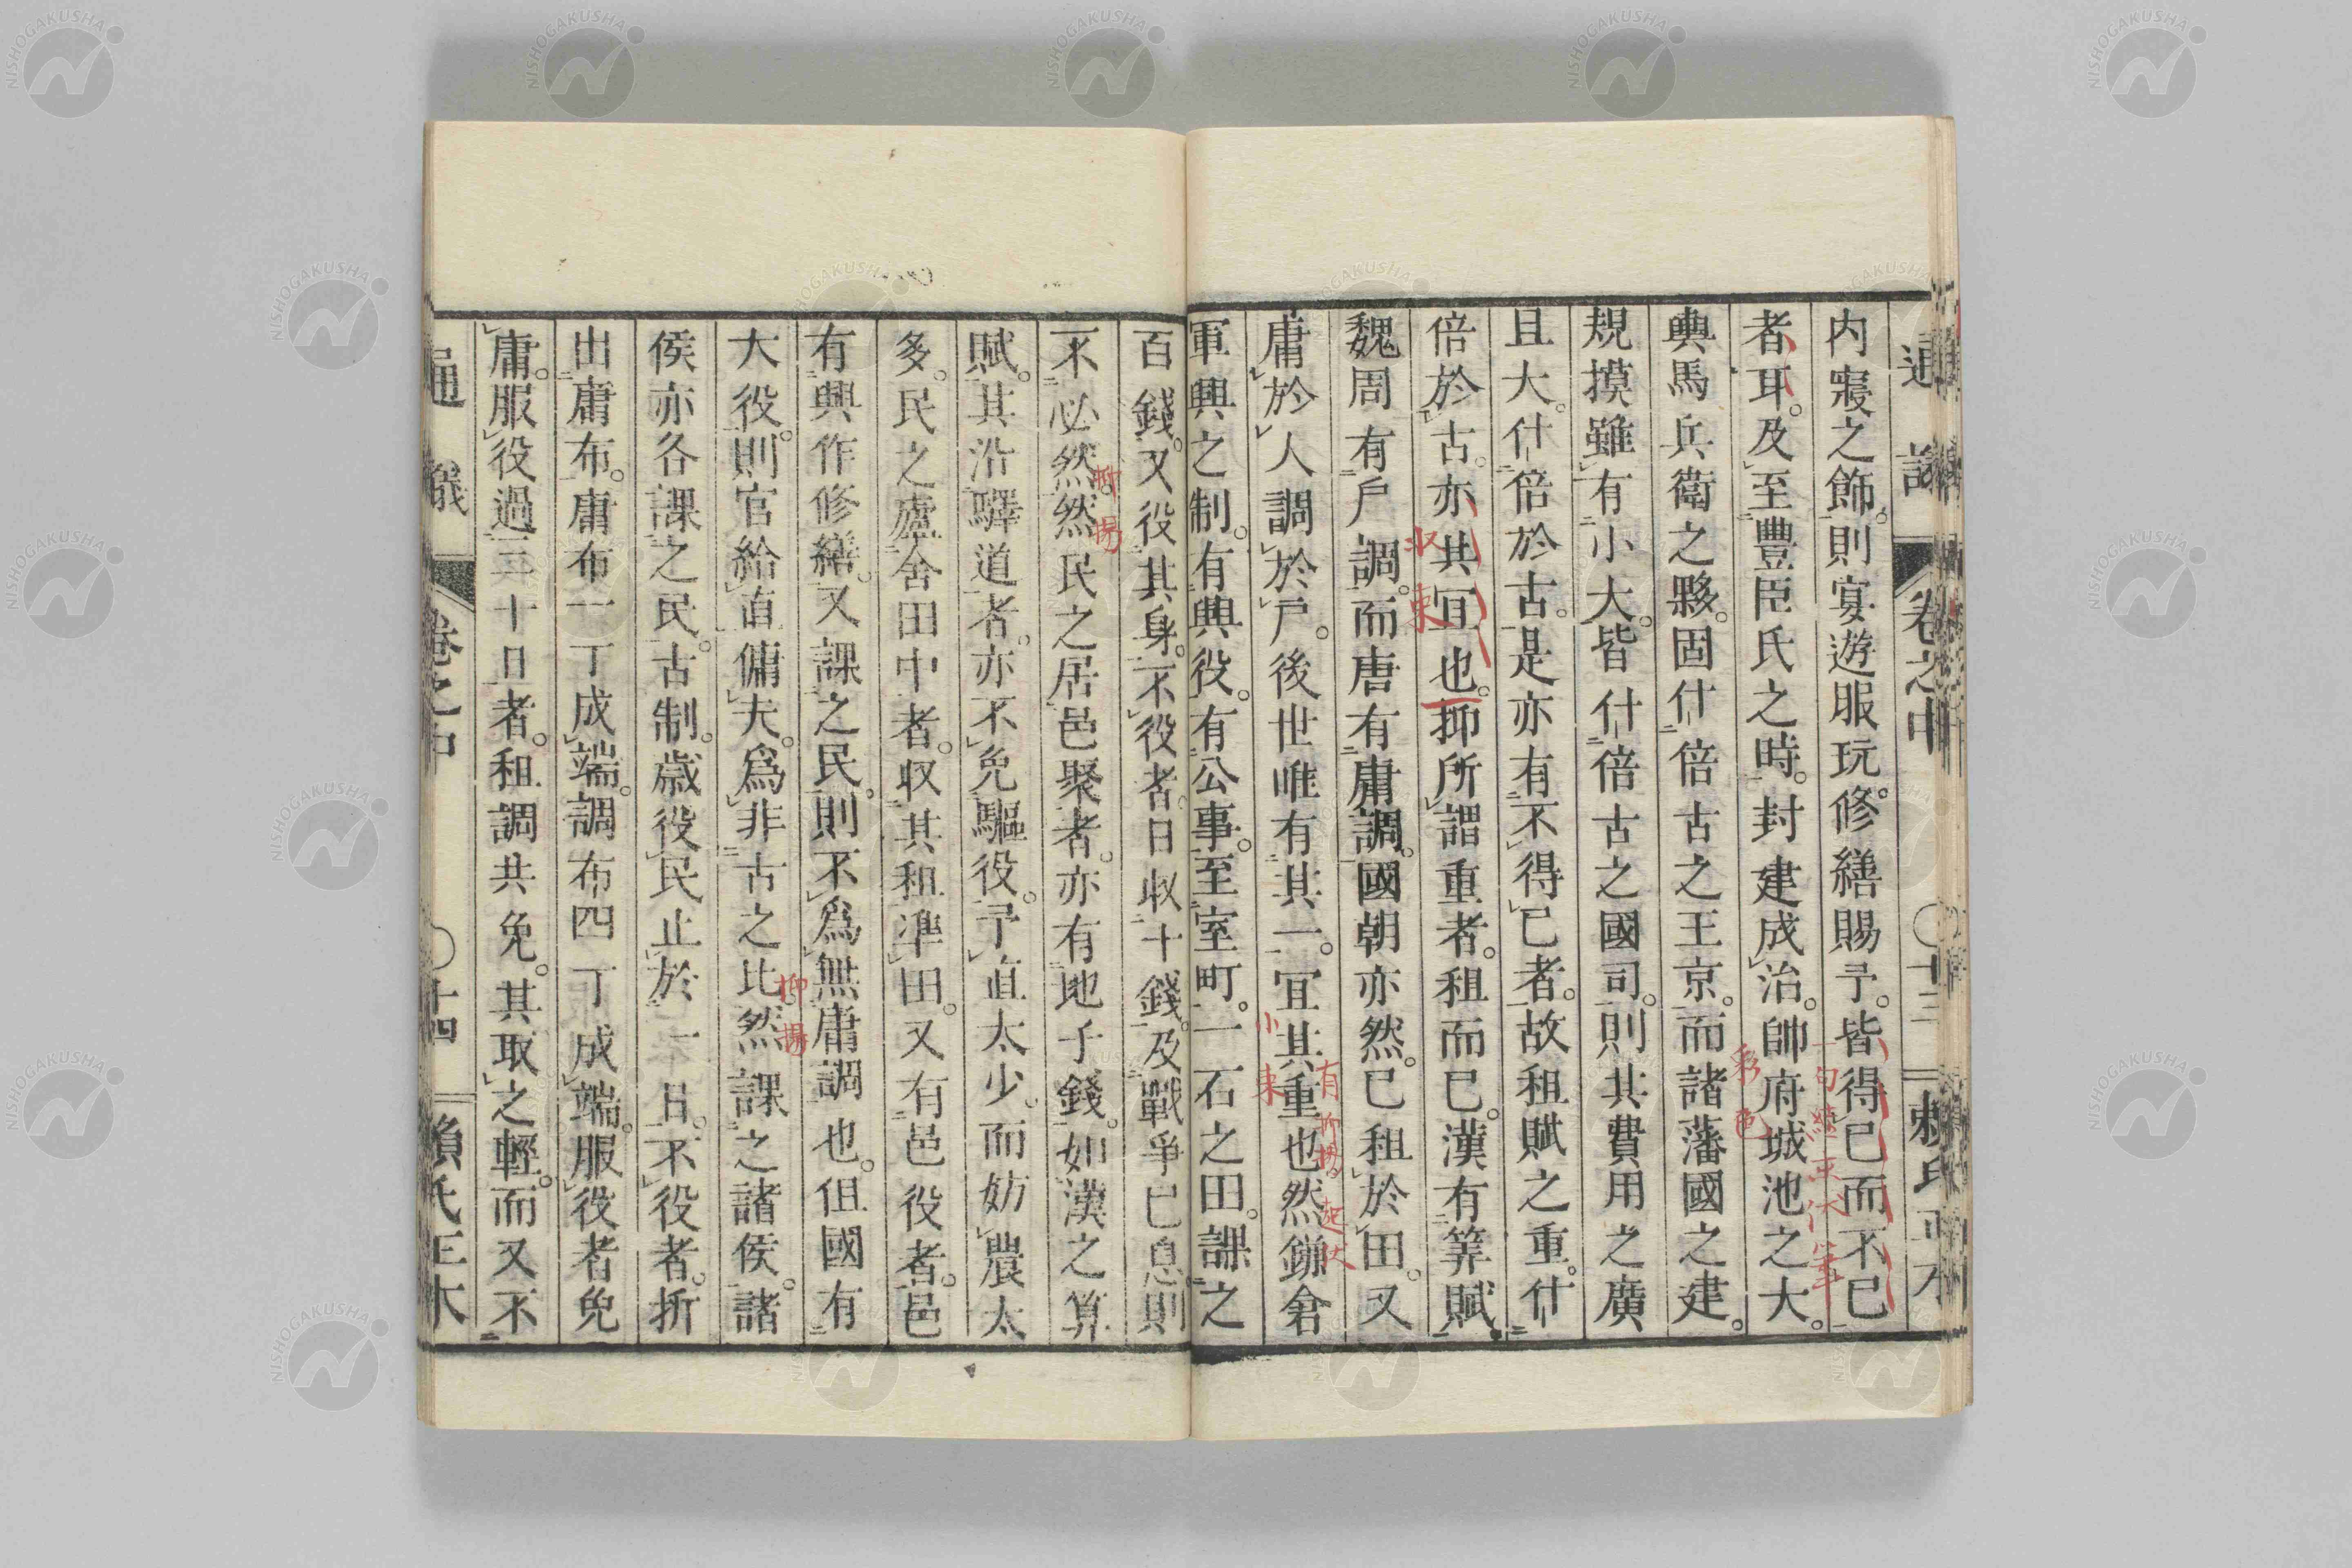 通議 卷之中 〇十三 賴氏正本
内寢之飾。則宴遊服玩。修繕賜予。皆得已而不已
者耳。及至豐臣氏之時。封建成治。帥府城池之大。
輿馬兵衛之夥。固什倍古之王京。而諸藩國之建。
規摸雖有小大。皆什倍古之國司。則其費用之廣
且大。什倍於古。是亦有不得已者。故租賦之重。什
倍於古。亦其宜也。抑所謂重者。租而已。漢有筭賦
魏周有戶調。而唐有庸調。國朝亦然。已租於田。又
庸於人調於戶。後世唯有其一。宜其重也然鎌倉
軍興之制。有興役。有公事。至室町。一石之田。課之
百錢。又役其身。不役者日收十錢。及戰爭已息則
不必然然民之居邑聚者。亦有地子錢。如漢之算
賦。其沿驛道者。亦不免驅役。予直太少。而妨農太
多。民之廬舍田中者。収其租準田。又有邑役者。邑
有興作修繕。又課之民。則不爲無庸調也。但國有
大役。則官給直傭夫。爲非古之比然課之諸侯。諸
侯亦各課之民。古制。歲役民止於一日。不役者。折
出庸布。庸布一丁成端。調布四丁成端。服役者免
庸。服役過三十日者。租調共免。其取之輕。而又不
通議 卷之中 〇十四 賴氏正本
一句總上伏筆
彩色
收束
有抑揚起伏
小束
抑揚
抑揚
NISHOGAKUSHA